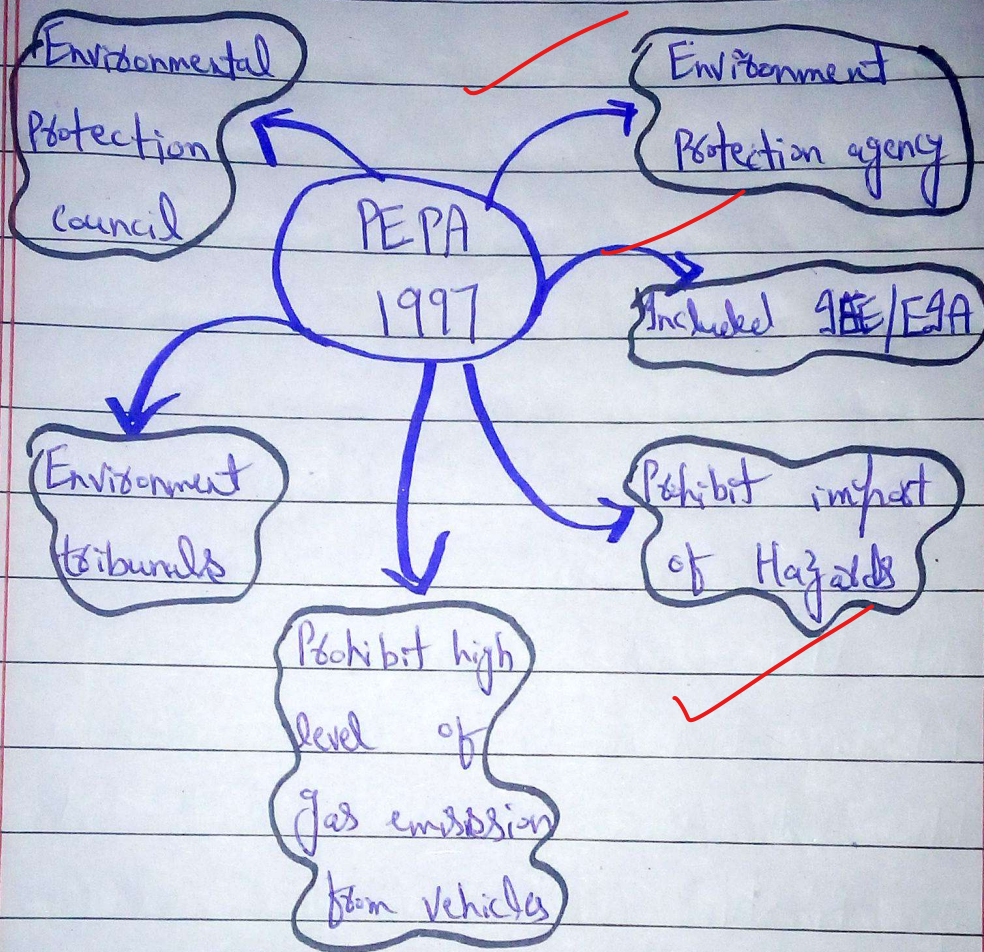 Environmental
Protection
council
Environment
Protection agency
PEPA
1997
Included IEE/EIA
Environment
tribunals
Prohibit import
of Hazards
Prohibit high
level of
gas emisssion
from vehicles